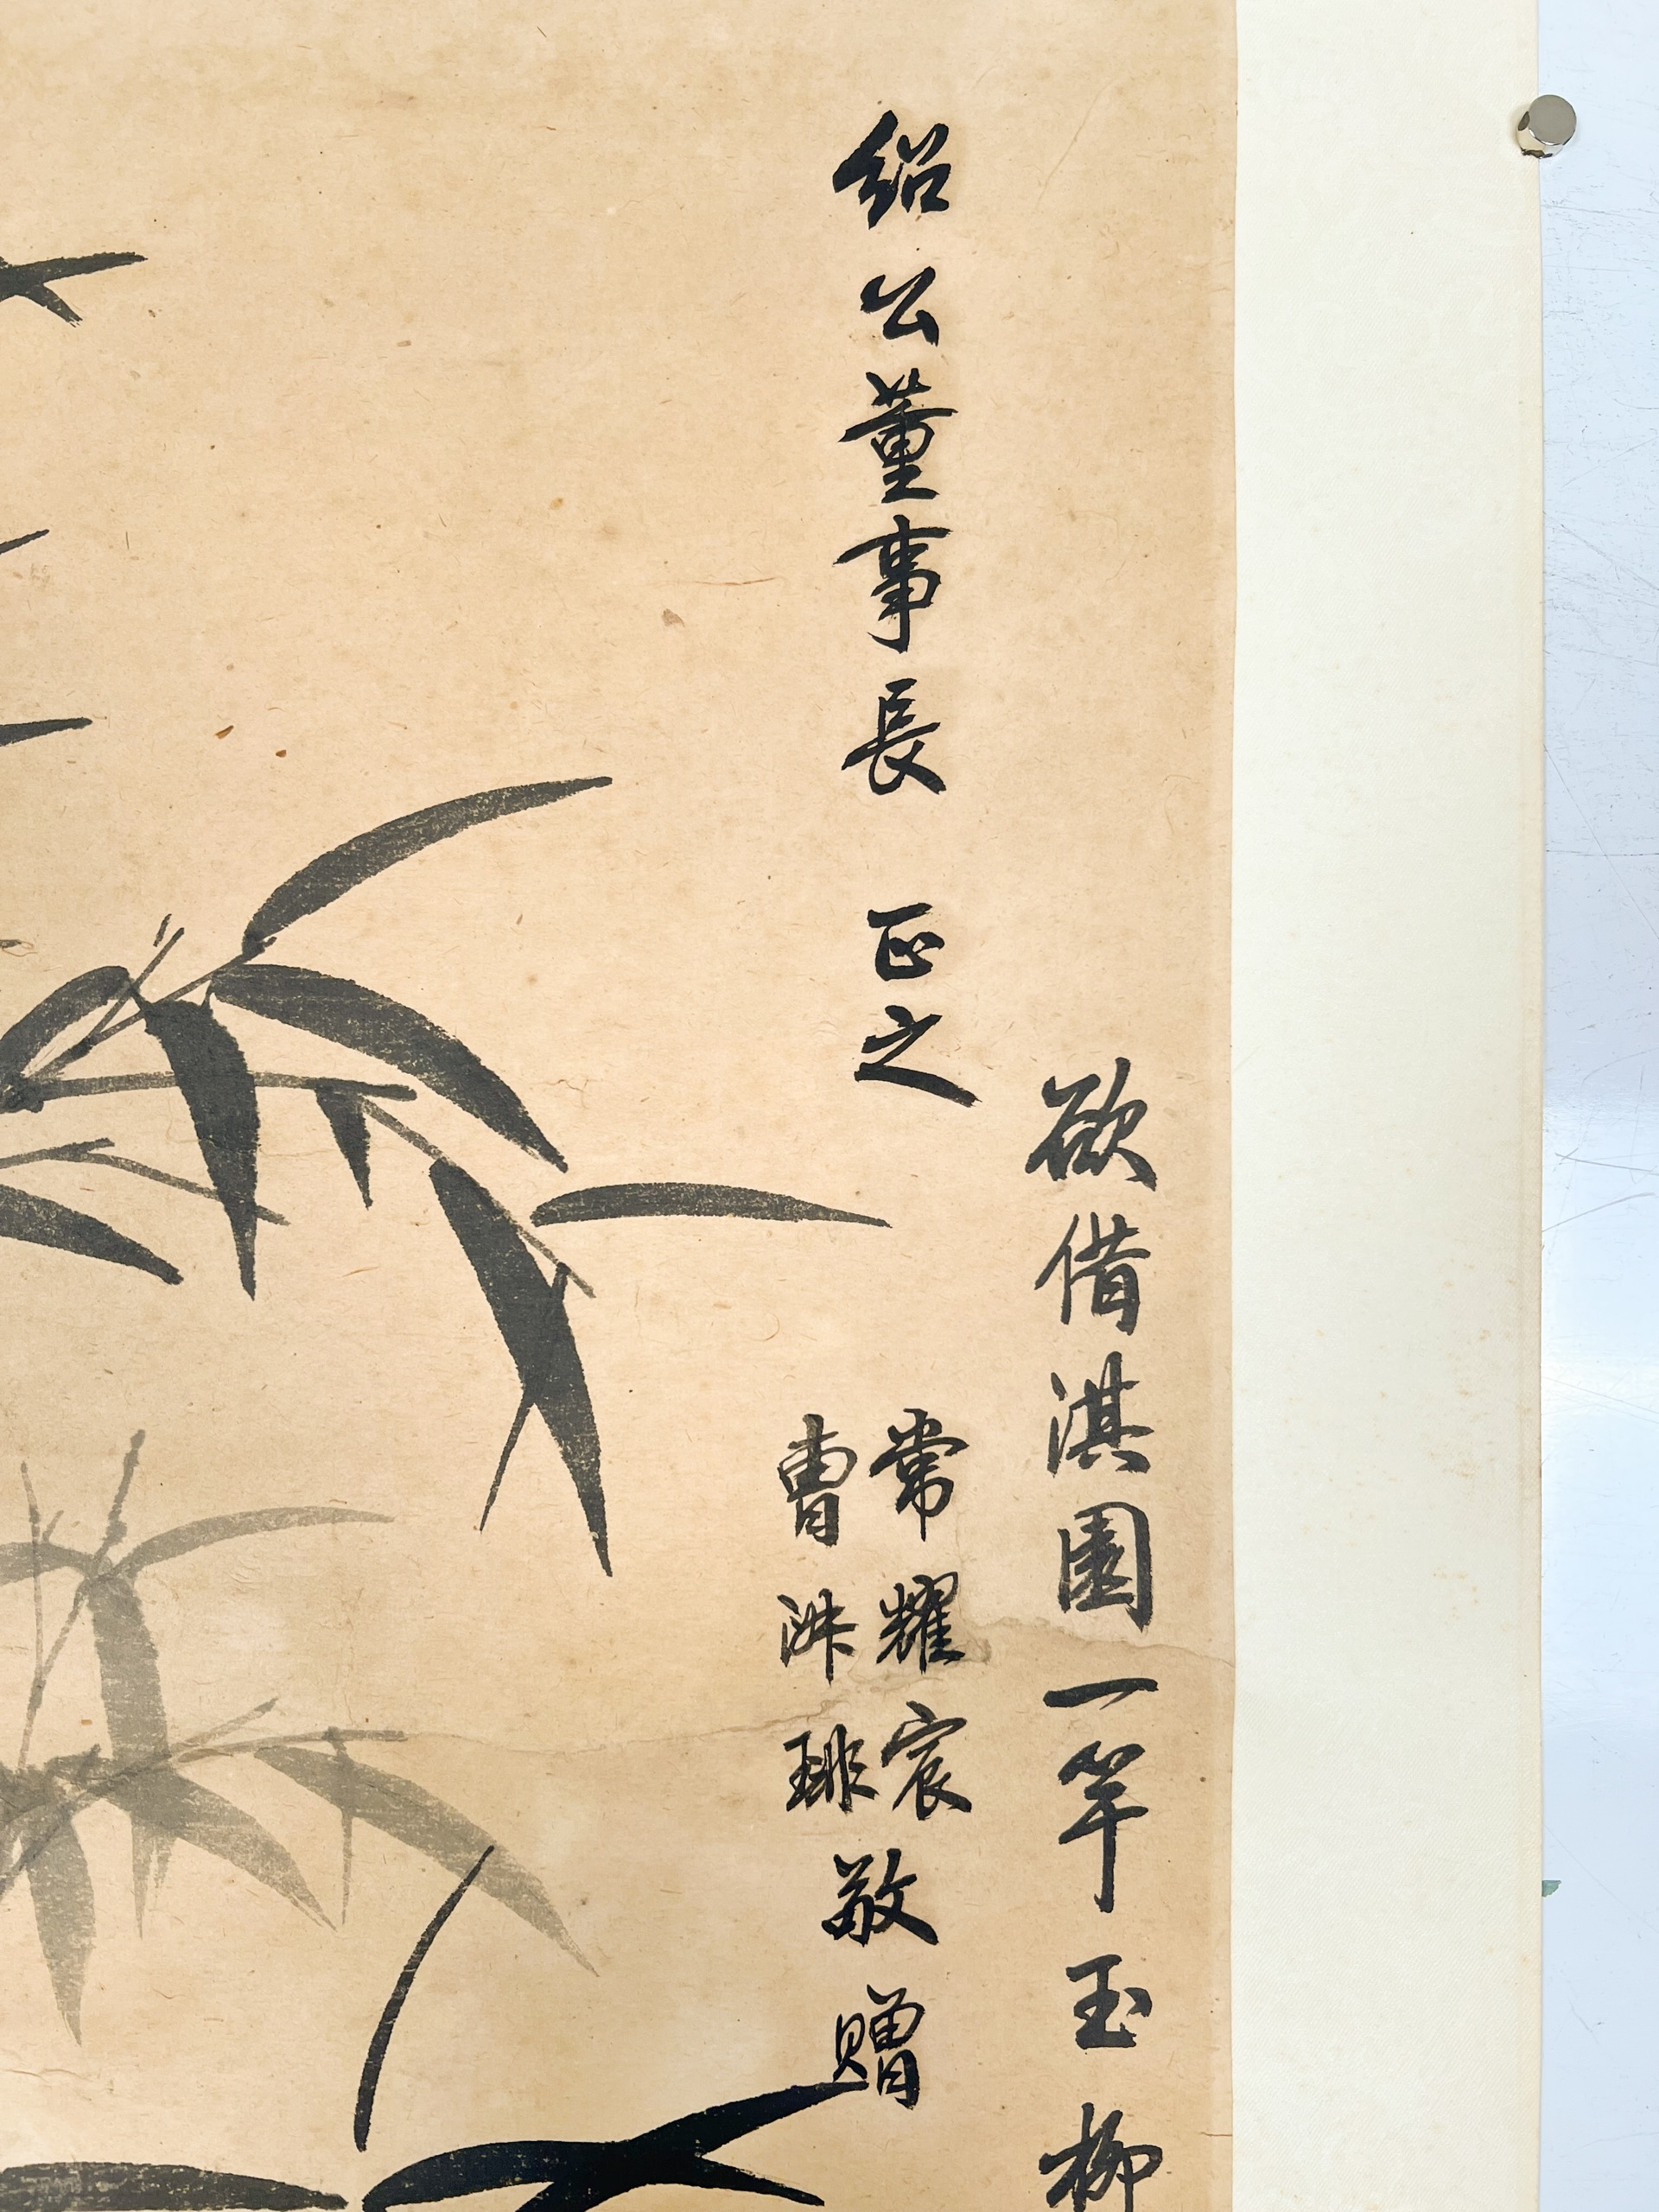 欲借淇園一竿玉柳
紹公董事長 正之
常耀宸
曹淋琲
敬贈